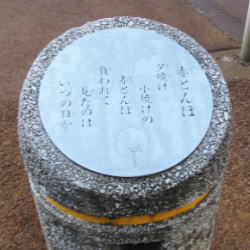 赤とんぼ
夕焼け
小焼けの
赤とんぼ
負われて
見たのは
いつの日か